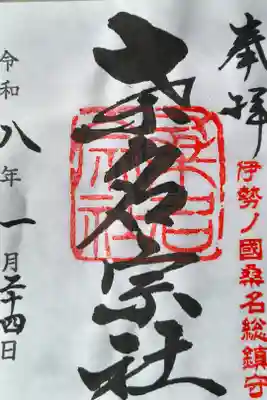 奉拝
伊勢ノ國桑名総鎮守
桑名宗社
桑名宗社
令和八年一月二十四日